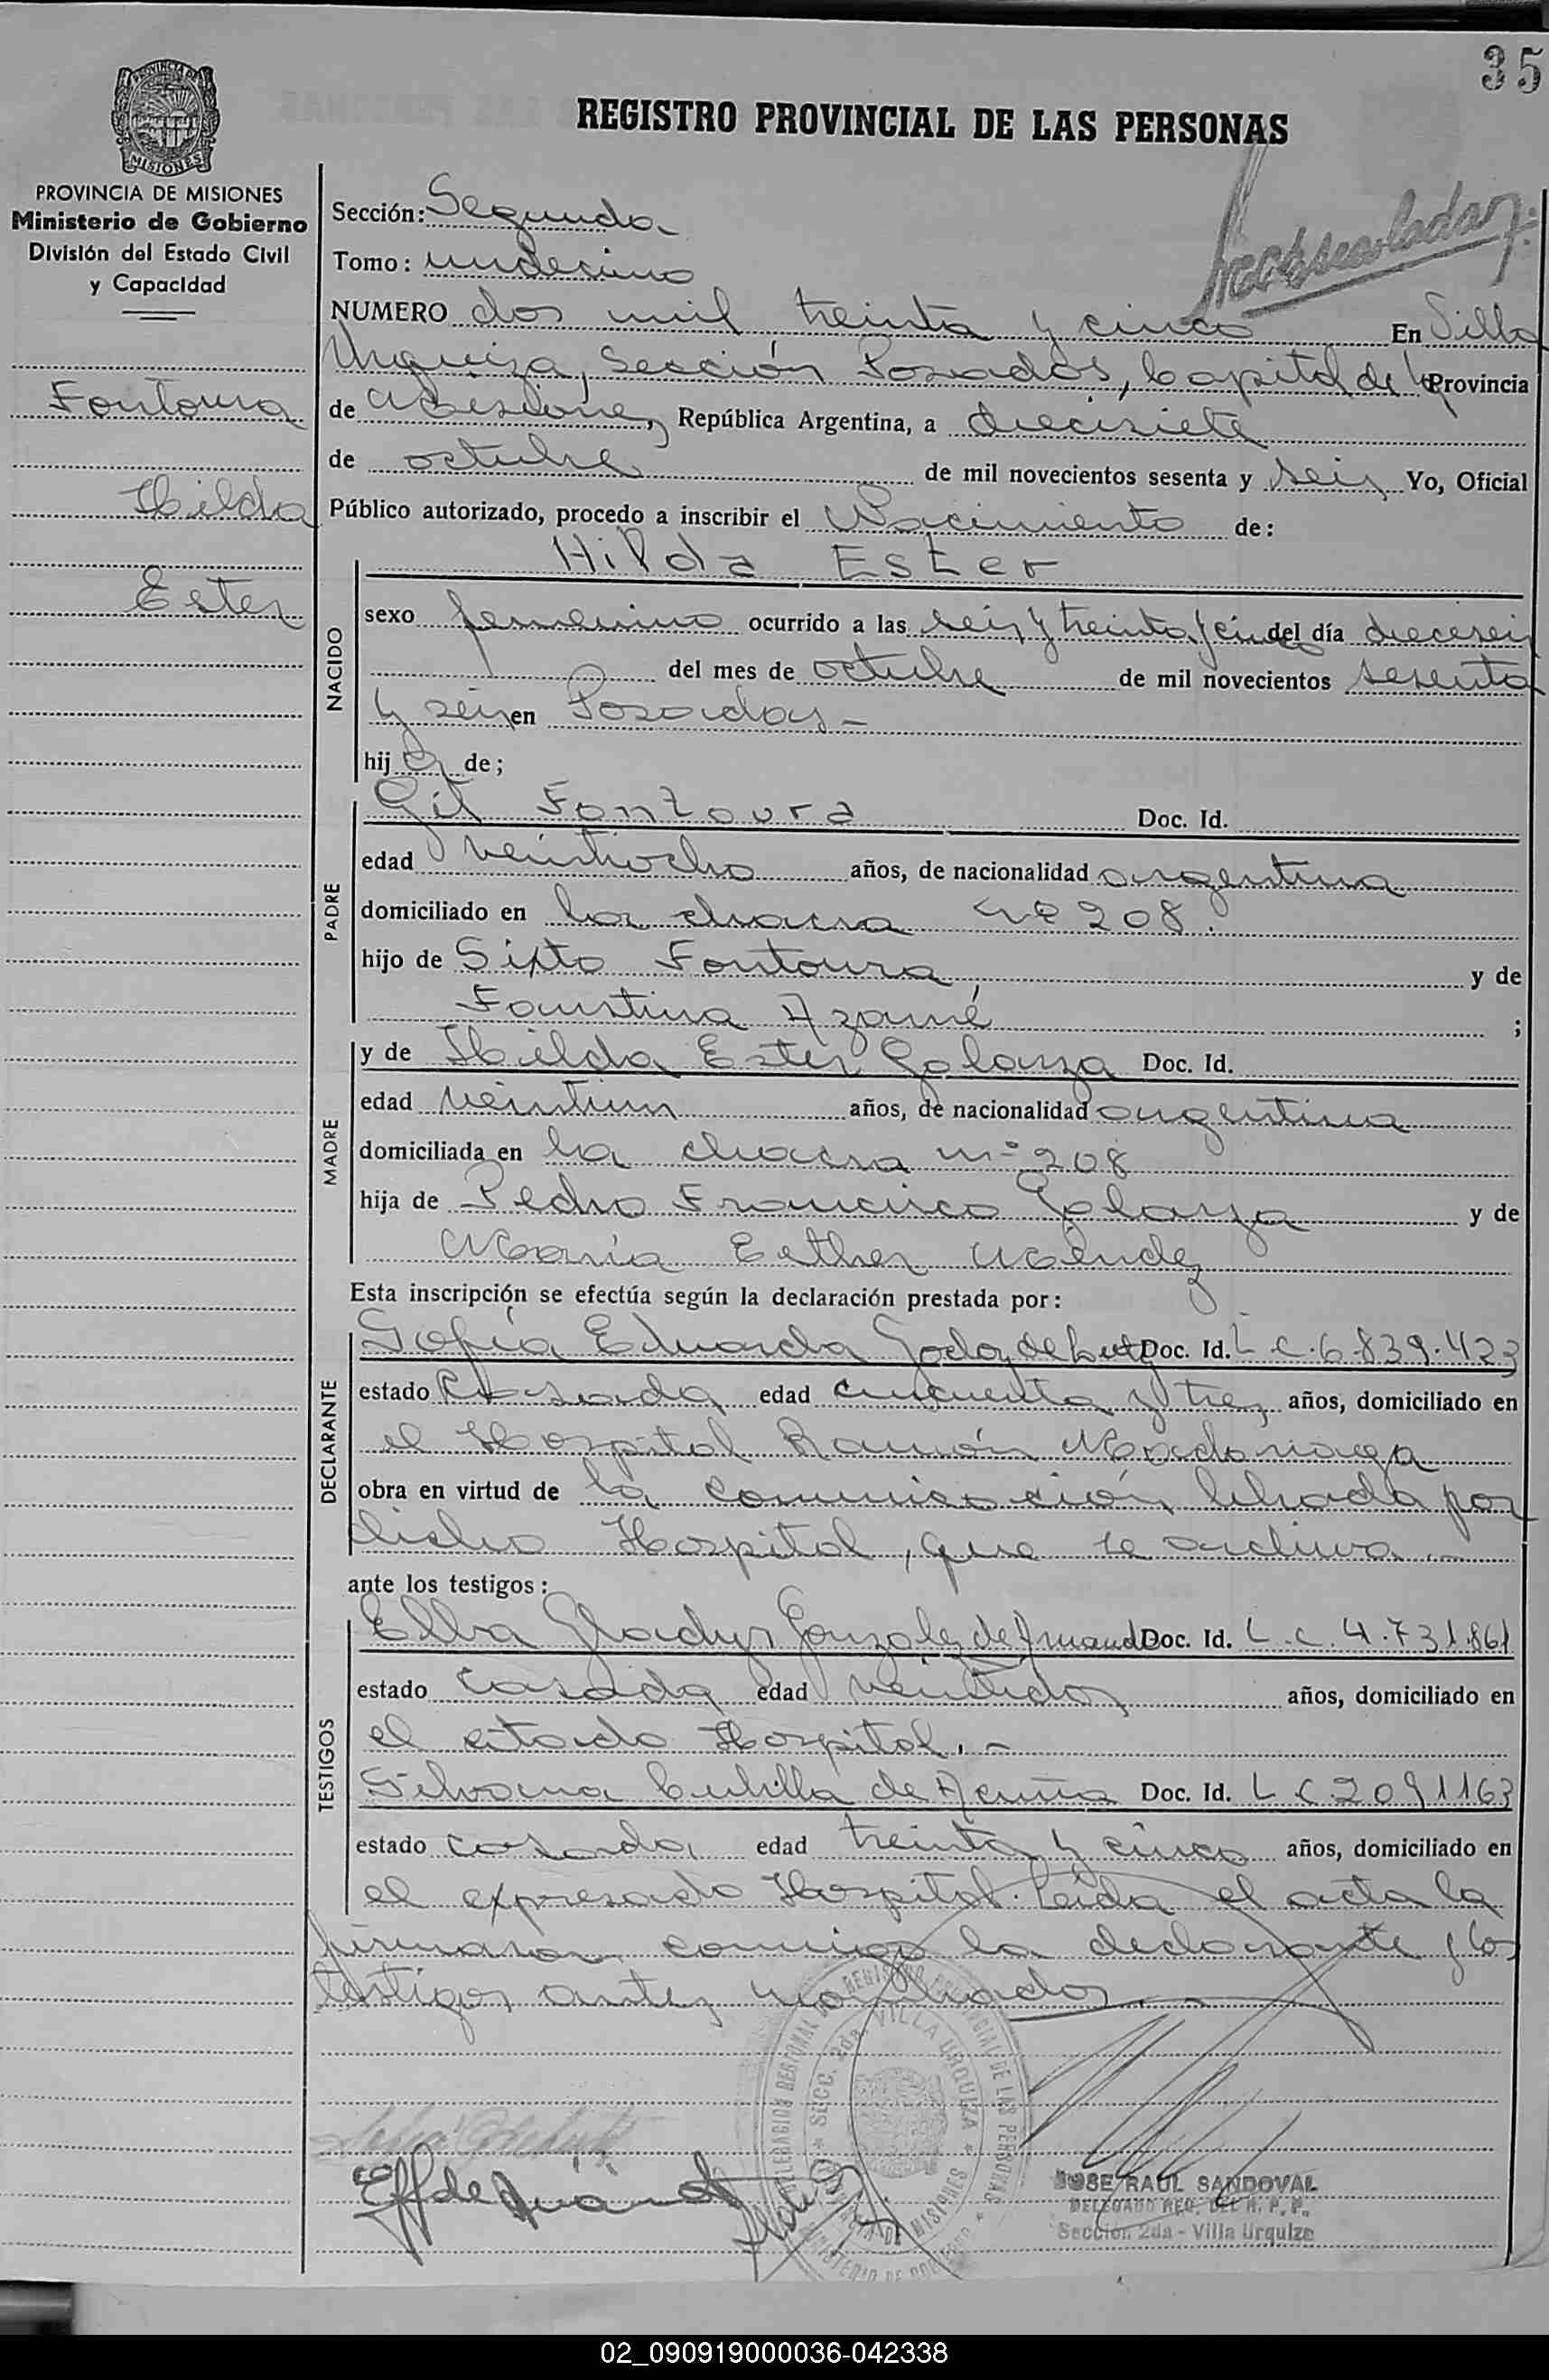 35
REGISTRO PROVINCIAL DE LAS PERSONAS
PROVINCIA DE MISIONES
Ministerio de Gobierno
División del Estado Civil
y Capacidad
Fontoura
Hilda
Ester
Sección: Segunda
Tomo: undecimo
NUMERO dos mil treinta y cinco En Villa
Urquiza, Sección Posadas, Capital de la Provincia
de Misiones, República Argentina, a diecisiete
de octubre de mil novecientos sesenta y seis Yo, Oficial
Público autorizado, procedo a inscribir el Nacimiento de:
NACIDO
Hilda Ester
sexo femenino ocurrido a las seis y treinta y cinco del día dieceseis
del mes de octubre de mil novecientos sesenta
y seis en Posadas -
hija de;
PADRE
Gil Fontoura Doc. Id.
edad veintiocho años, de nacionalidad argentina
domiciliado en la chacra nº 208.
hijo de Sixto Fontoura y de
Faustina ;
MADRE
y de Hilda Ester Galarza Doc. Id.
edad veintiun años, de nacionalidad argentina
domiciliada en la chacra nº 208
hija de Pedro Francisco Galarza y de
María Esther Méndez
Esta inscripción se efectúa según la declaración prestada por:
DECLARANTE
Sofía Eduarda Godoy de Doc. Id. L.C. 6.839.423
estado casada edad cincuenta y tres años, domiciliado en
el Hospital Ramón Madariaga
obra en virtud de la comunicación librada por
dicho Hospital, que se archiva.-
ante los testigos:
TESTIGOS
Elba Gladys Gonzalez de Doc. Id. L.C. 4.731.861
estado casada edad veintidos años, domiciliado en
el citado Hospital. -
Silvana de Acuña Doc. Id. L.C 2091163
estado casada edad treinta y cinco años, domiciliado en
el expresado Hospital. Leida el acta la
firmaron conmigo la declarante y los
testigos antes nombrados. -
DELEGACION REGIONAL DEL REGISTRO PROVINCIAL DE LAS PERSONAS
SECC. 2da. VILLA URQUIZA
PROVINCIA DE MISIONES
MINISTERIO DE GOBIERNO
JOSE RAUL SANDOVAL
DELEGADO REG. DEL R. P. P.
Sección 2da - Villa Urquiza
02_090919000036-042338